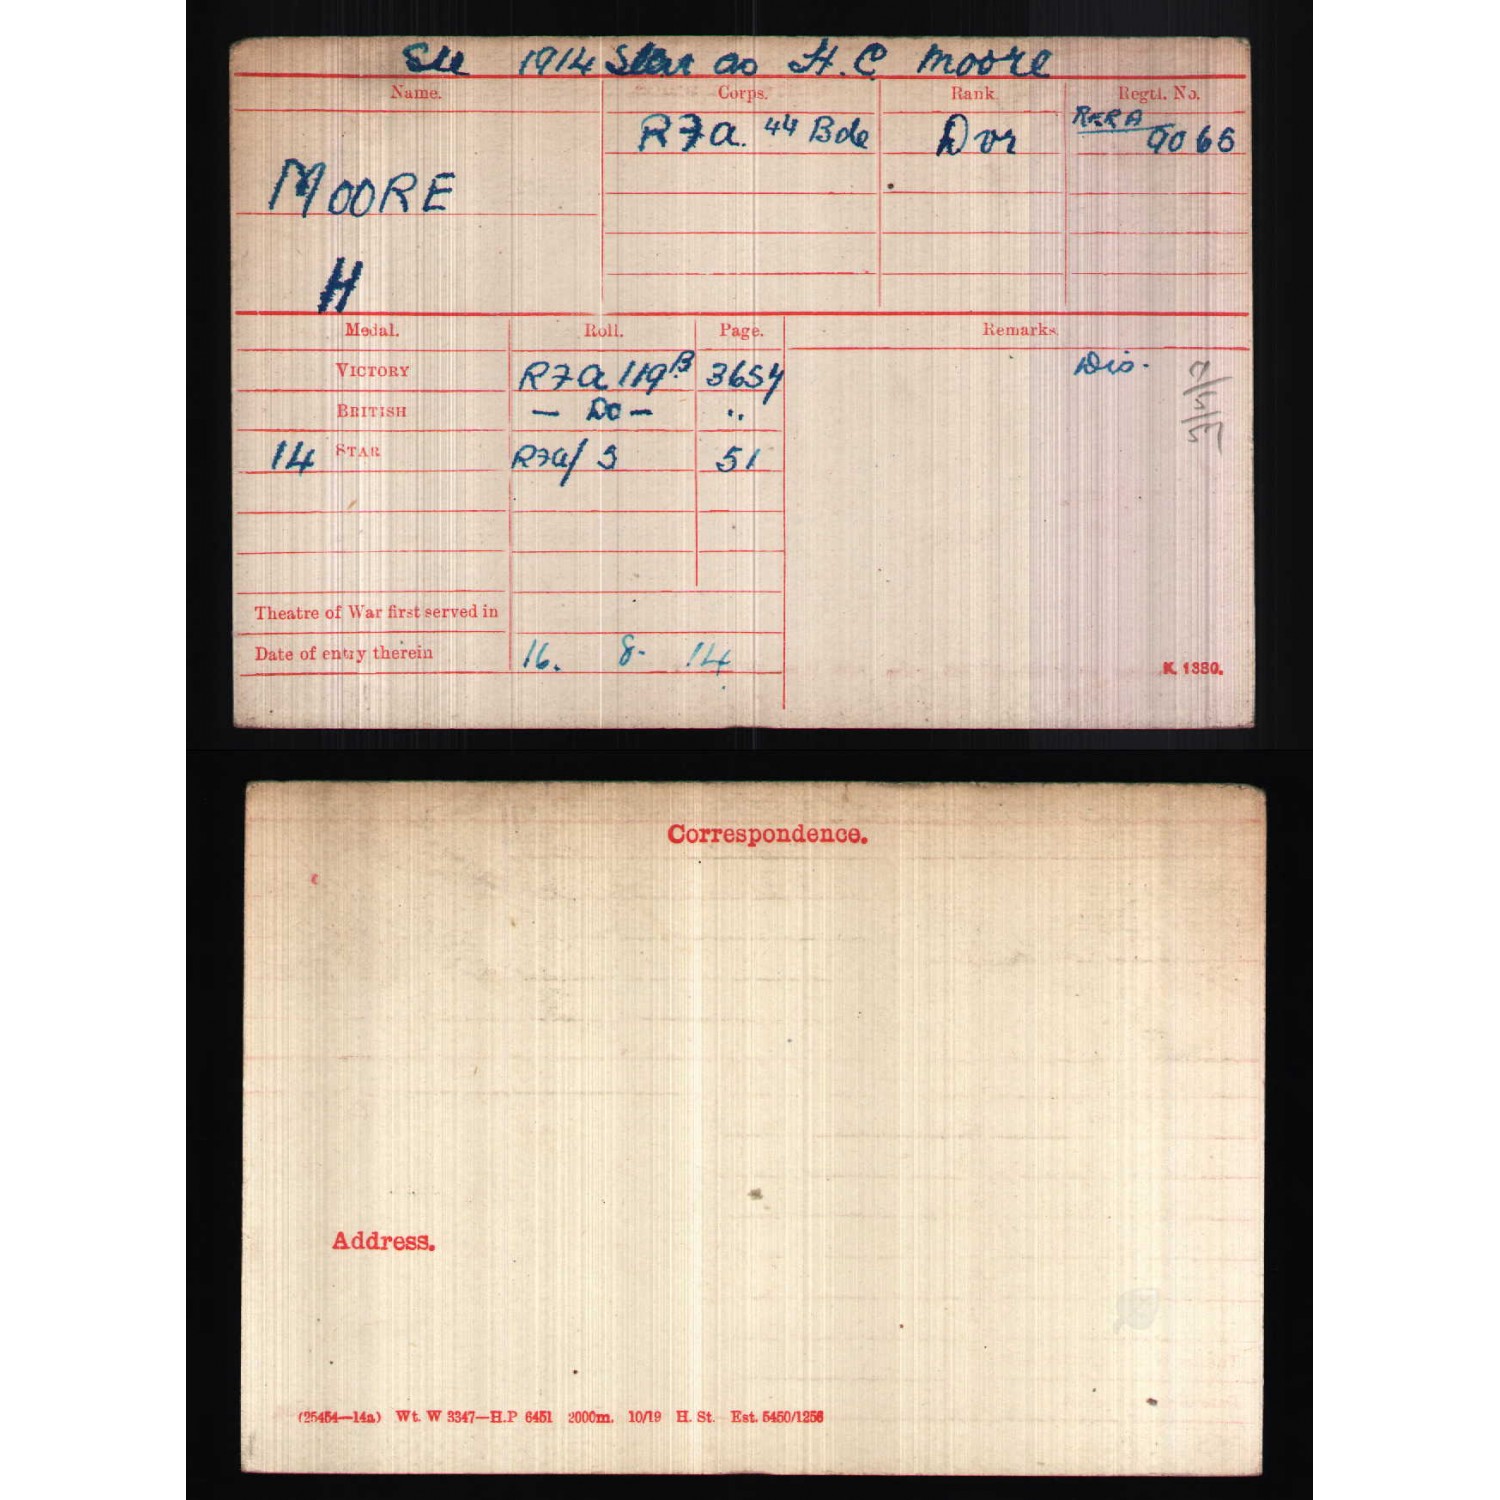 See 1914 Star as H. C Moore
Name. Corps. Rank. Regtl. No.
MOORE
H
RFA. 44 Bde Dvr
Medal. Roll. Page. Remarks.
VICTORY RFA 119B 3654 Dis.
BRITISH — Do — "
14 STAR RFA/ 3 51
Theatre of War first served in
Date of entry therein 16. 8. 14
K. 1380.
Correspondence.
Address.
(25454—14a) Wt. W 3347—H.P 6451 2000m. 10/19 H. St. Est. 5450/1256